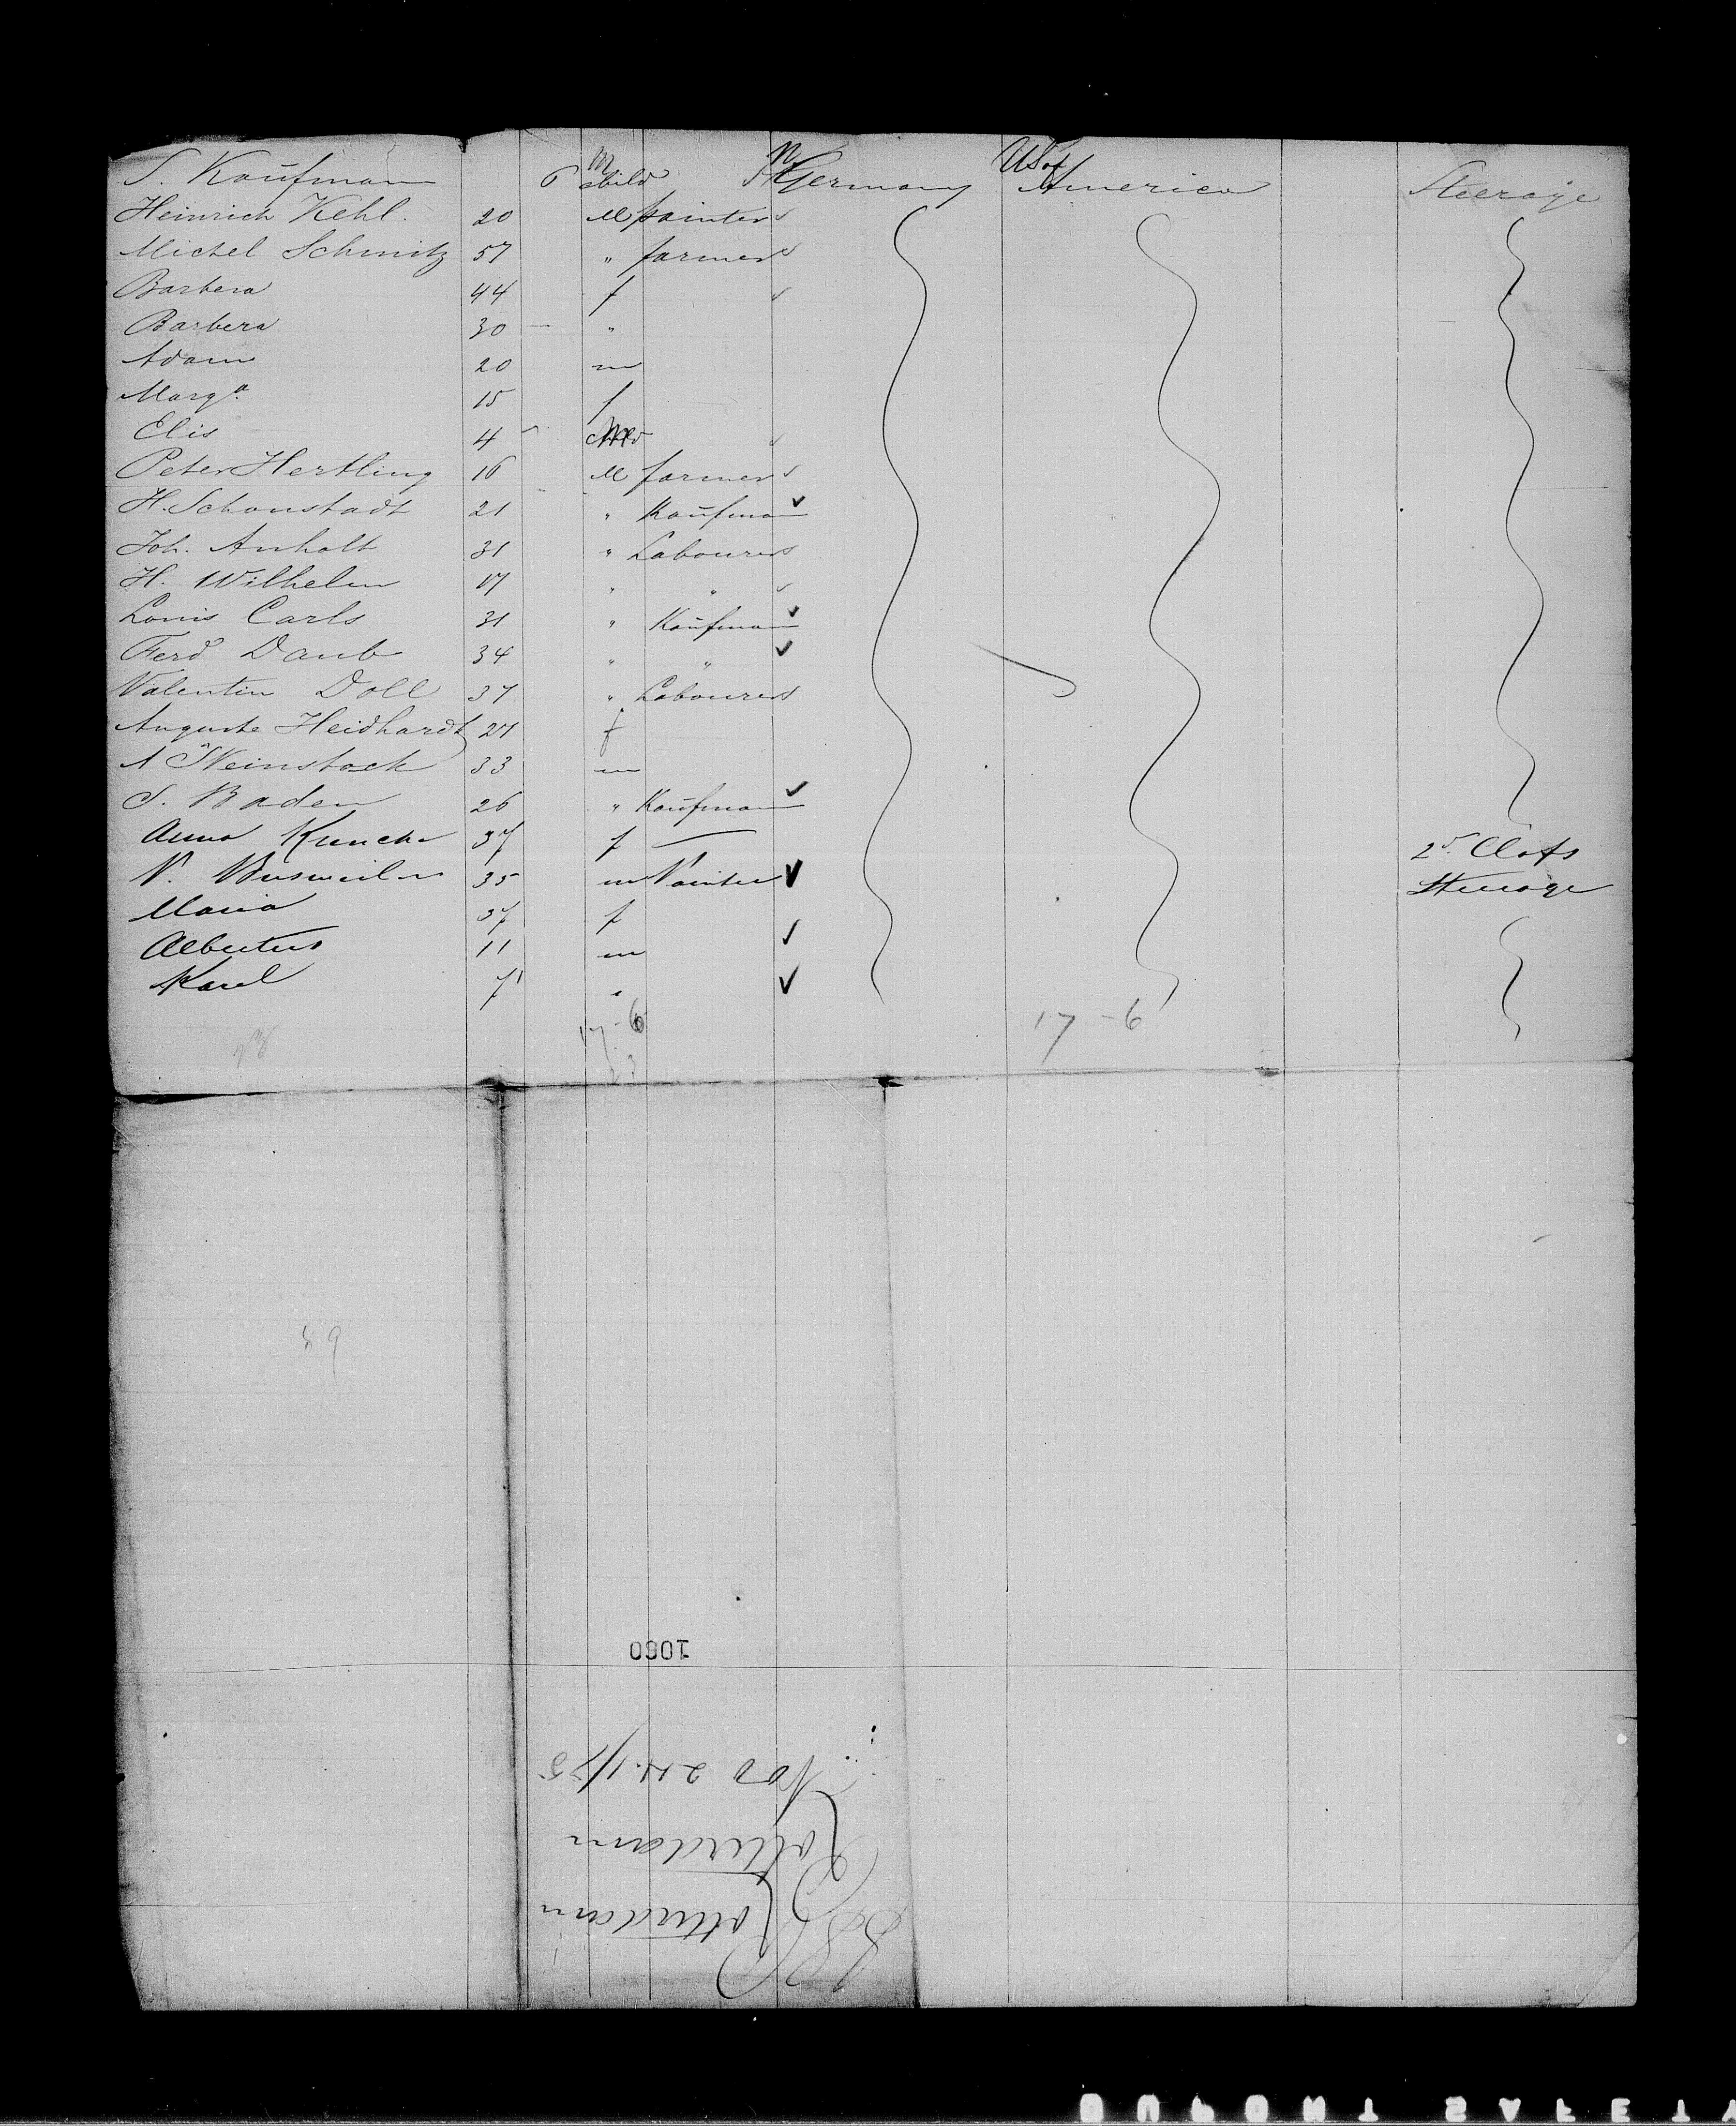 S. Kaufman 6 M child Germany US of America Steerage
Heinrich Kehl. 20 M painter
Michel Schmitz 57 " farmer
Barbera 44 f
Barbera 30 "
Adam 20 m
Marg.a 15 f
Elis 4
Peter Hertling 16 M farmer
H. Schonstadt 21 " Kaufman
Joh. Anholt 31 " Labourer
H. Wilhelm 17 " "
Louis Carls 31 " Kaufman
Ferd Daub 34 " "
Valentin Doll 37 " Labourer
Auguste Heidhardt 27 f
A Weinstock 33 m
S. Baden 26 " Kaufman
Anna 37 f — 2d. Class
35 m Painter Steerage
Maria 37 f
Albertus 11 m
Karel 7 "
17-6 17-6
23
1060
SS Rotterdam
Rotterdam
Nov 24/75